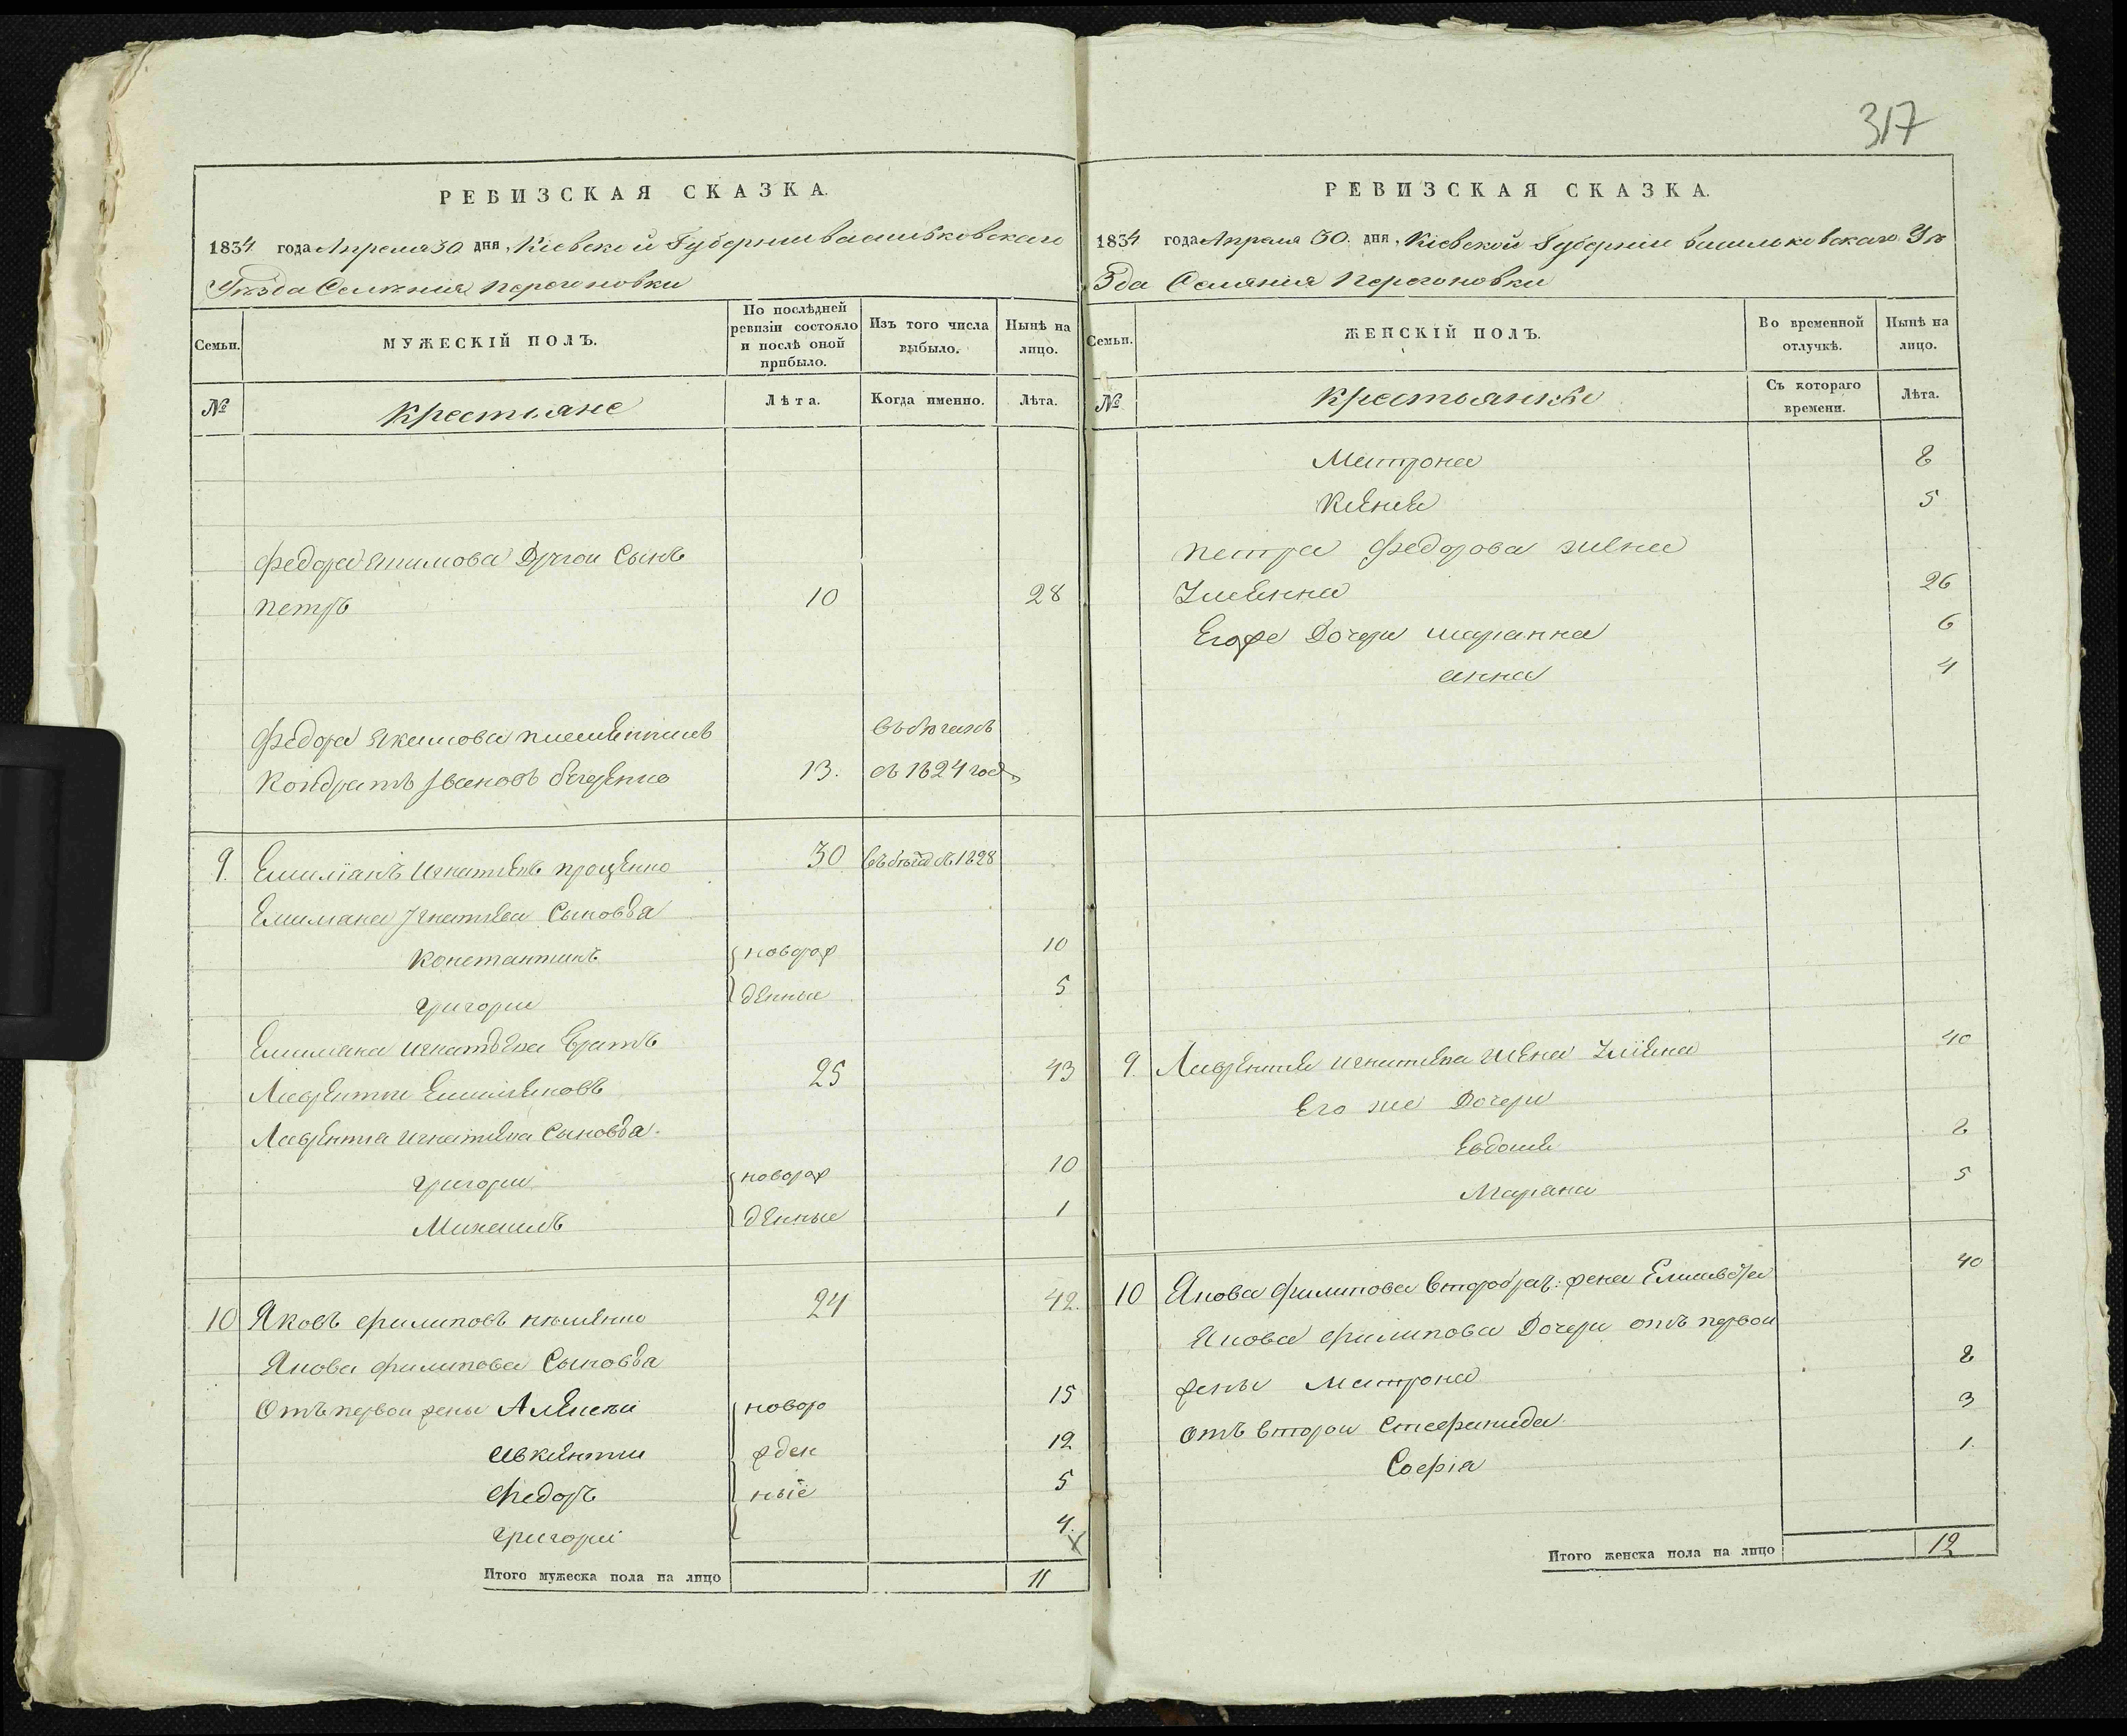 317
РЕВИЗСКАЯ СКАЗКА.
1834 года Апреля 30 дня, Кіевской Губерніи васильковскаго
Уѣзда Селенія Перегоновки
Семьи.
МУЖЕСКІЙ ПОЛЪ.
По послѣдней ревизіи состояло и послѣ оной прибыло.
Изъ того числа выбыло.
Нынѣ на лицо.
№
Крестьяне
Лѣта.
Когда именно.
Лѣта.
Федора Якимова Другои Сынъ
петръ 10 28
Федора Якимова племенникъ въ бѣгахъ
Кондратъ Ивановъ 13. съ 1824 год
9. Емиліанъ Игнатіевъ проценко 30 съ 1828
Емилiана Игнатиева Сыновья
Константинъ новорож 10
григории денные 5
Емилияна Игнатьева Братъ
Лаврентии Емилияновъ 25 43
Лаврентия Игнатиева Сыновья
григории новорож 10
Михаилъ денные 1
10 Яковъ филиповъ 24 42.
Якова филипова Сыновья
Отъ первои жены Алексѣи новоро 15
Авксентии жден 12
Федоръ ныѣ 5
григорiи 4.
Итого мужеска пола на лицо 11
РЕВИЗСКАЯ СКАЗКА.
1834 года Апреля 30. дня, Кіевской Губерніи васильковскаго Уѣ
Зда Селянія Перегоновки
Семьи.
ЖЕНСКІЙ ПОЛЪ.
Во временной отлучкѣ.
Нынѣ на лицо.
№
Крестьянки
Съ котораго времени.
Лѣта.
Матрона 8
Ксения 5
петра Федорова жена
Улиянна 26
Егоже Дочери марианна 6
анна 4
9. Лаврентия Игнатиева жена Улiяна 40
Его же Дочери
Евдокия 8
Марiана 5
10 Якова филипова второбрач: жена Елисавета 40
Якова филипова Дочери отъ первои
жены Матрона 8
отъ второи Стефанида 3
Софiя 1
Итого женска пола на лицо 12